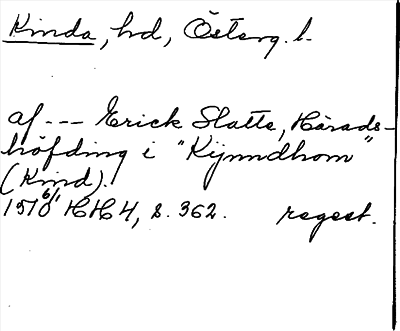 Kinda, hd, Österg. l.
af --- Erick Slatte, Härads-
höfding i "Kijnndhom"
(Kind).
1510 6/1 HH 4, s. 362. regest.